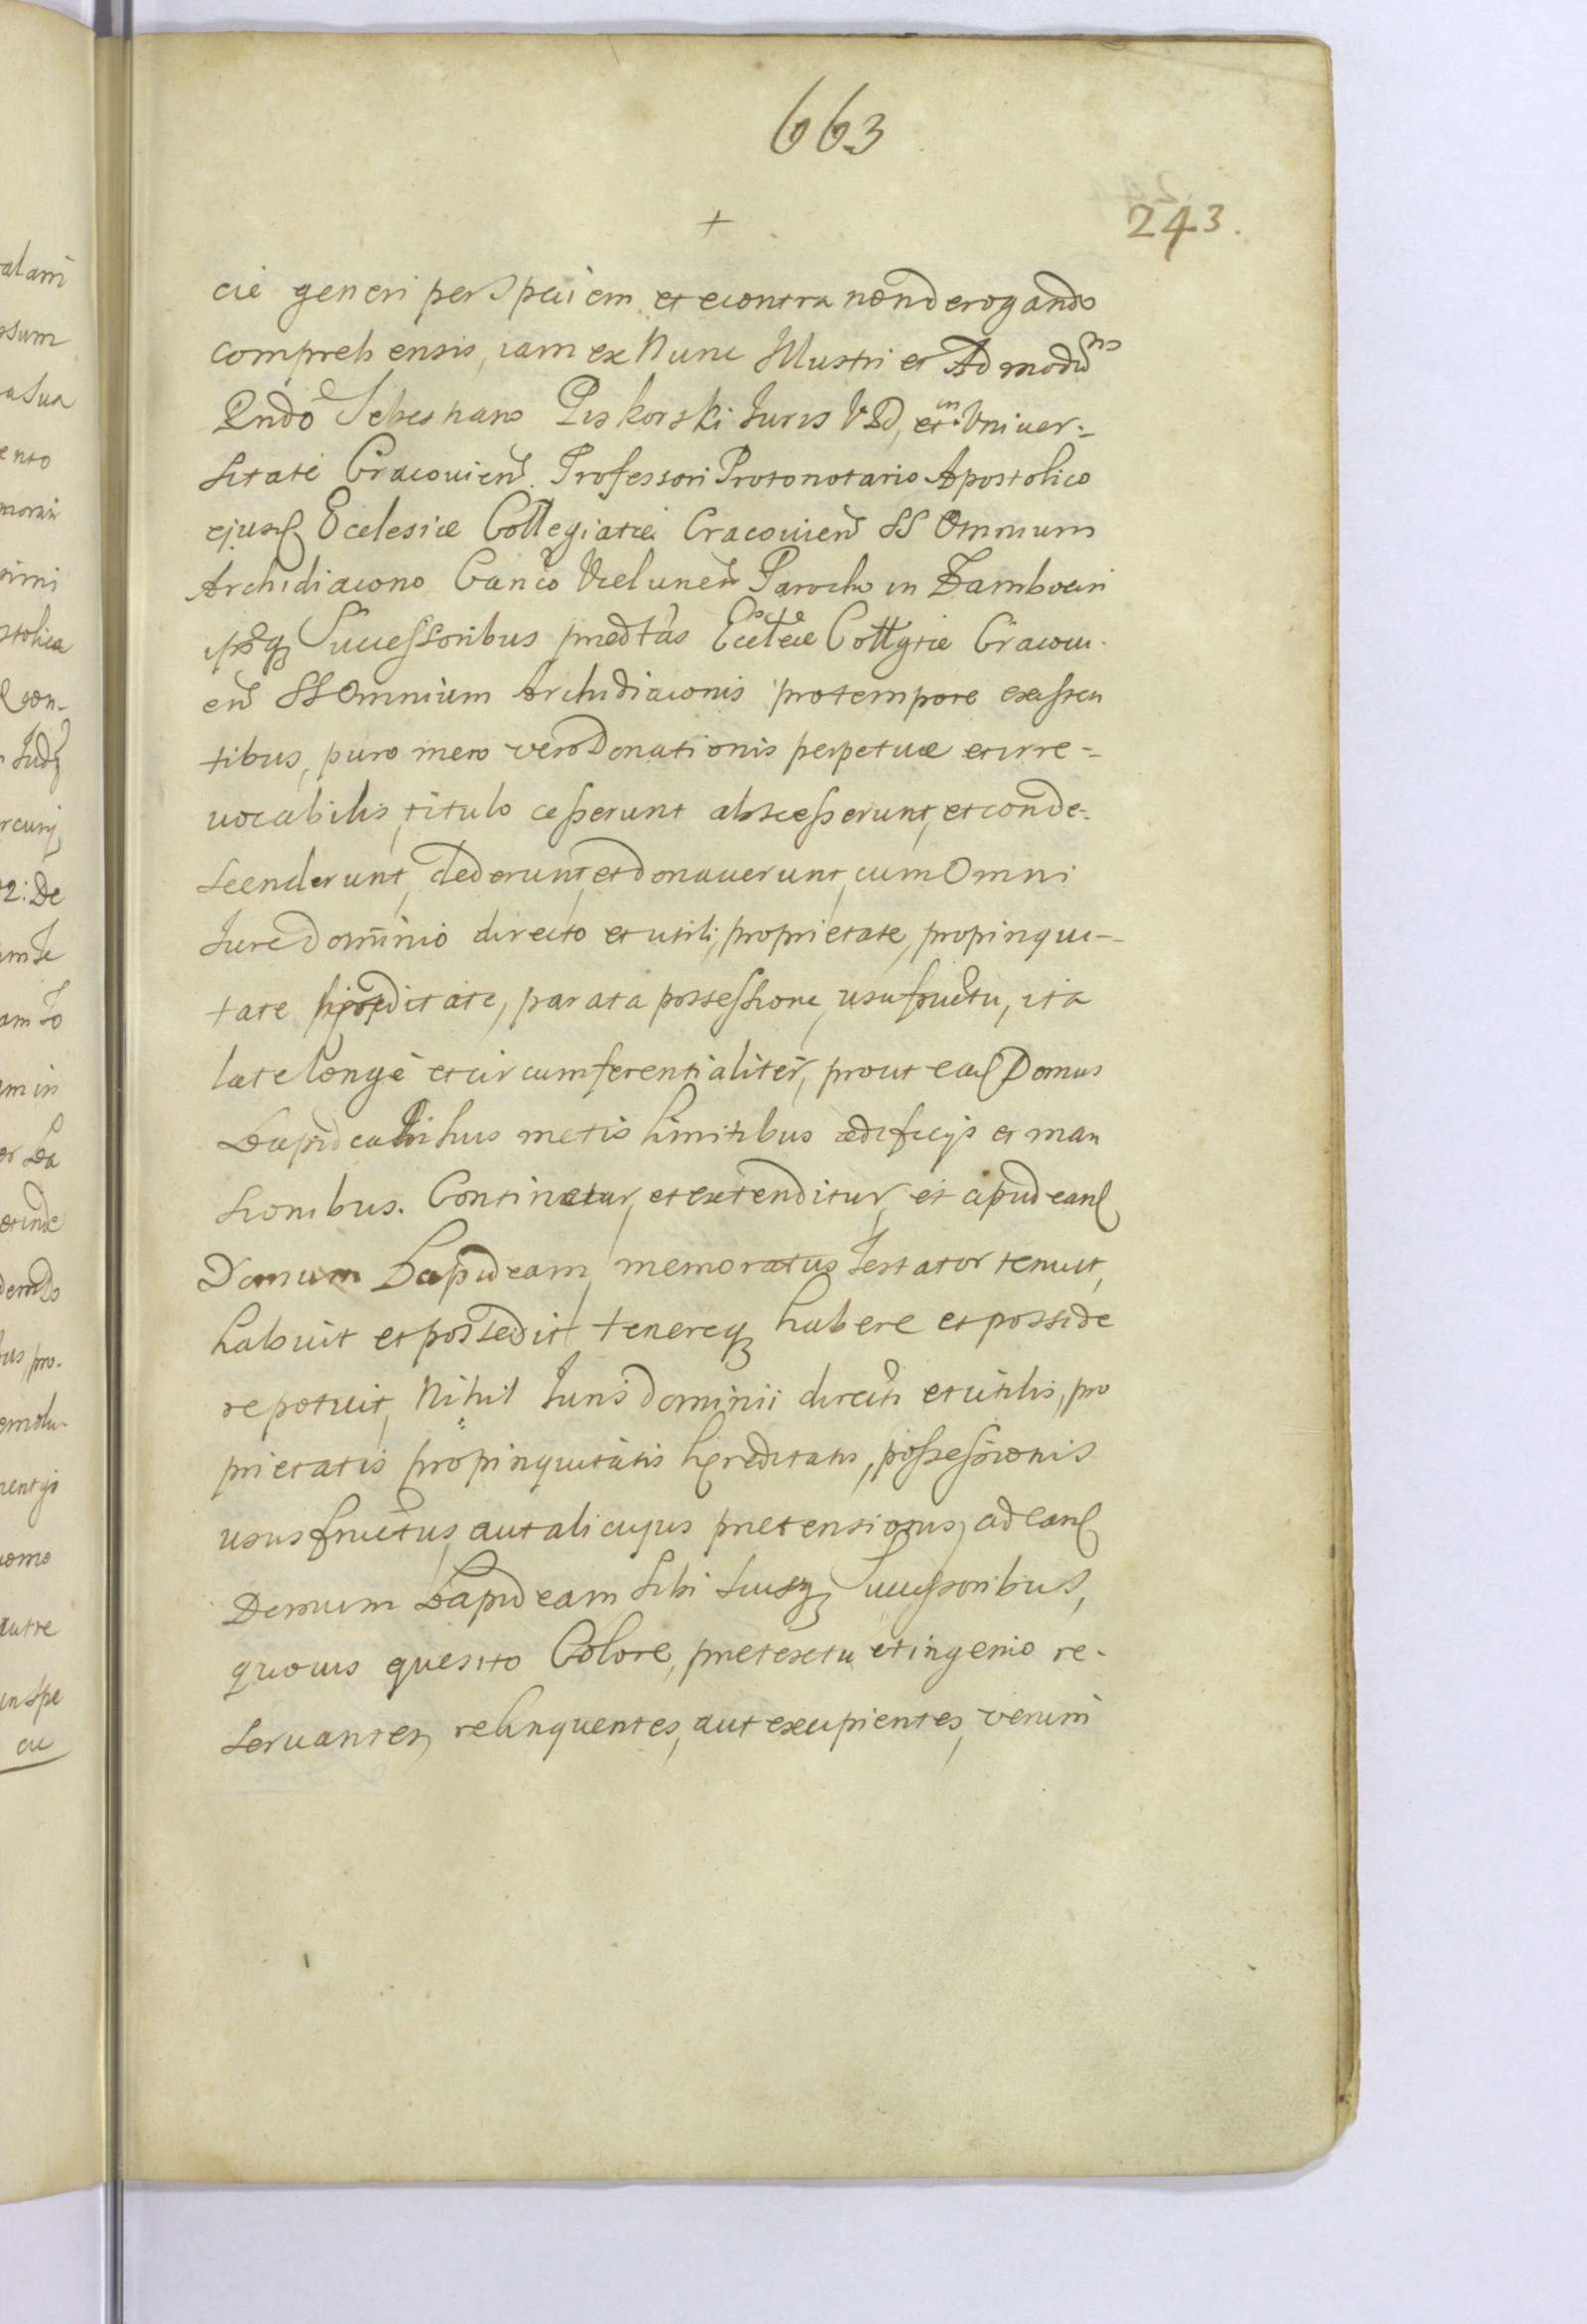 663
+
243.
cie generi per Speciem et econtra non derogando
comprehensis, iam ex Nunc Illustri et Admodū
Rndo Sebestiano Piskorski Iuris VD, et in Vniver:=
sitate Cracouien. Professori Protonotario Apostolico
ejusd Ecclesiæ Collegiatæ Cracouien SS Omnium
Archidiacono Canco Vielunen Parocho in Zambocin
ipsiq3 Successoribus prædtas Ecclæ Collgtæ Cracoui-
en SS Omnium Archidiaconis pro tempore existen
tibus, puro mero vero Donationis perpetuæ et irre=
uocabilis, titulo cesserunt abscesserunt, et conde:
scenderunt, dederunt, et donauerunt, cum Omni
Iure dominio directo et utili, proprietate, propinqui-
tate hæreditate, parata possessione, usufructu, ita
late longè et circumferentialiter, prout ead Domus
Lapidea metis limitibus ædificijs et man
sionibus. Continetur, et extenditur, et apud eand
Domum Lapideam, memoratus Testator tenuit,
habuit et possedit tenereq3 habere et posside
re potuit, Nihil Iuris dominii directi et utilis, pro
prietatis propinquitatis hæreditatis, possessionis
ususfructus, aut alicujus prætensionis, ad eand
Domum Lapideam sibi suisq3 Successoribus,
quouis quesito Colore, prætextu et ingenio re-
seruantes, relinquentes, aut excipientes, verum